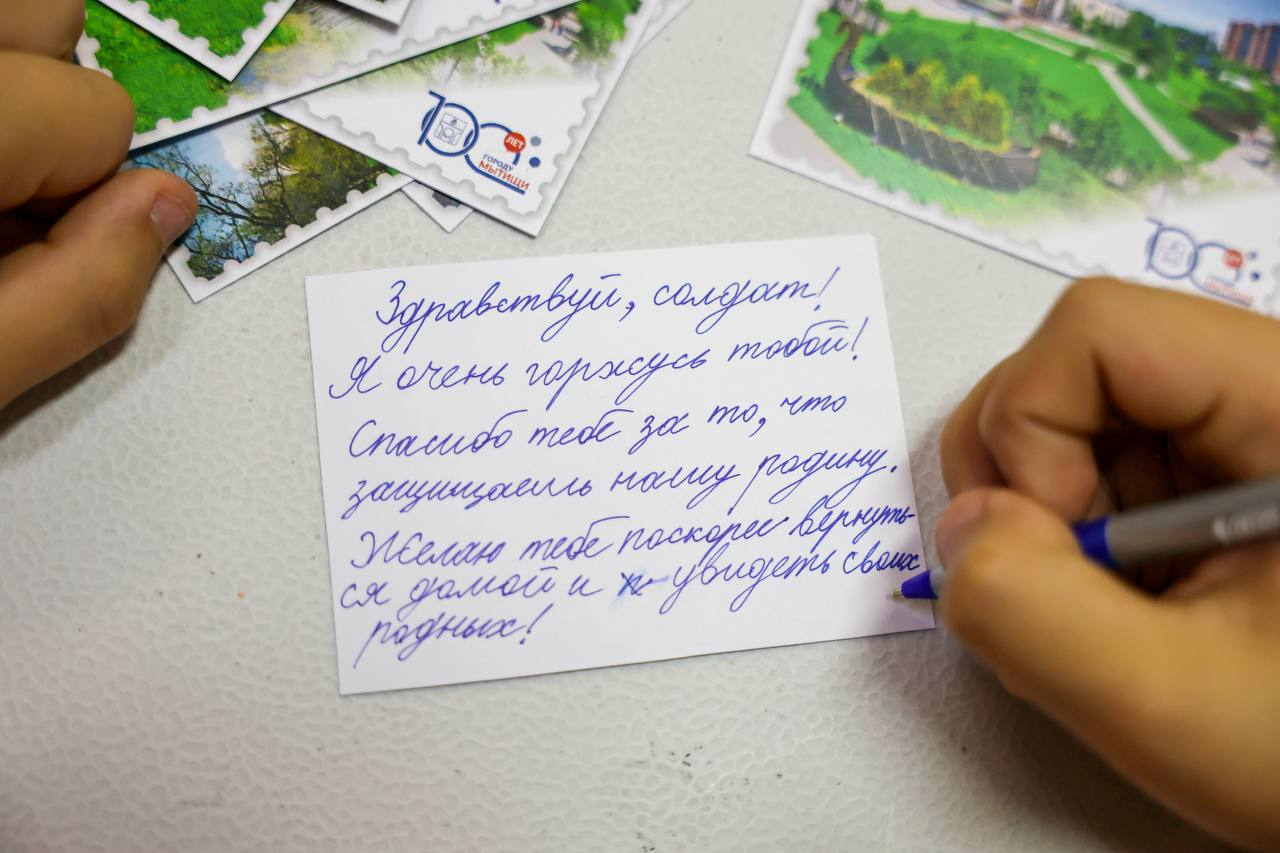 100 ЛЕТ
ГОРОДУ
МЫТИЩИ
100 ЛЕТ
ГОРОДУ
МЫТИЩИ
Здравствуй, солдат!
Я очень горжусь тобой!
Спасибо тебе за то, что
защищаешь нашу родину.
Желаю тебе поскорее вернуть-
ся домой и увидеть своих
родных!